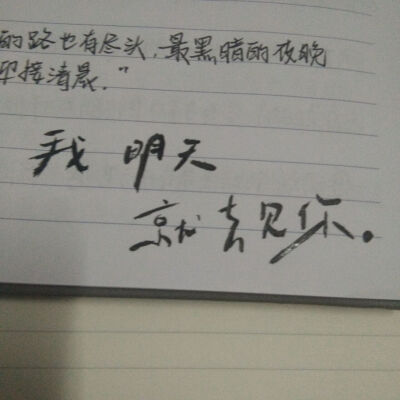 的路也有尽头,最黑暗的夜晚
迎接清晨。”
我 明天
就去见你。